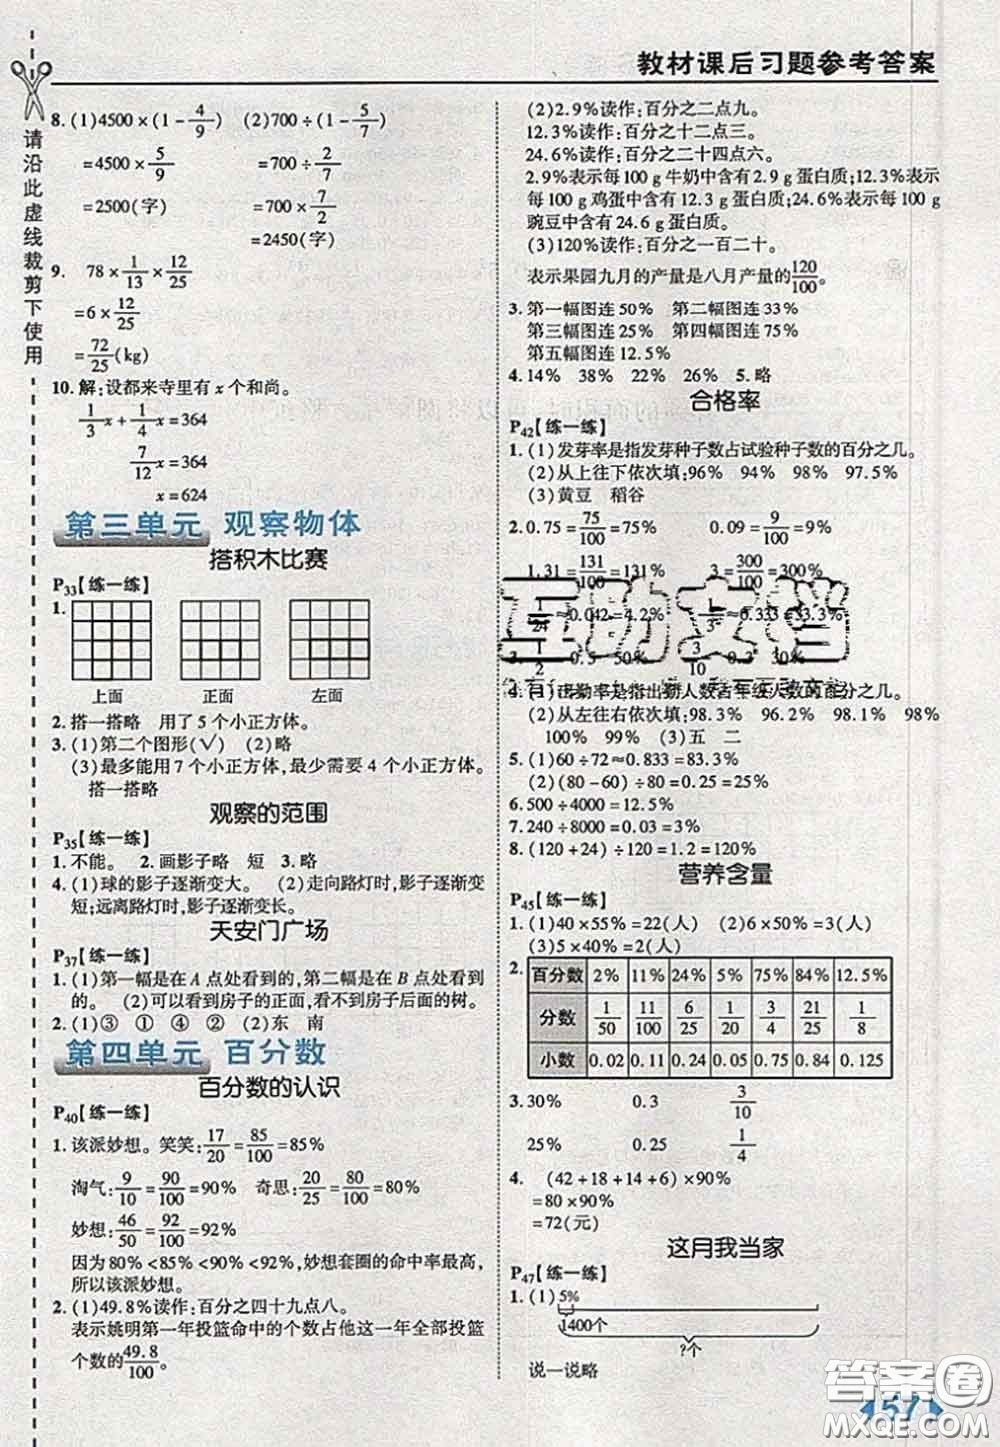 教材课后习题参考答案
请沿此虚线裁剪下使用
8. (1)4500×(1-4/9) (2)700÷(1-5/7)
=4500×5/9 =700÷2/7
=2500(字) =700×7/2
=2450(字)
9. 78×1/13×12/25
=6×12/25
=72/25(kg)
10. 解:设都来寺里有 x 个和尚。
1/3x+1/4x=364
7/12x=364
x=624
第三单元 观察物体
搭积木比赛
P33【练一练】
1.
上面 正面 左面
2. 搭一搭略 用了 5 个小正方体。
3. (1)第二个图形(√) (2)略
(3)最多能用 7 个小正方体,最少需要 4 个小正方体。
搭一搭略
观察的范围
P35【练一练】
1. 不能。 2. 画影子略 短 3. 略
4. (1)球的影子逐渐变大。 (2)走向路灯时,影子逐渐变
短;远离路灯时,影子逐渐变长。
天安门广场
P37【练一练】
1. (1)第一幅是在 A 点处看到的,第二幅是在 B 点处看到
的。 (2)可以看到房子的正面,看不到房子后面的树。
2. (1)③ ① ④ ② (2)东 南
第四单元 百分数
百分数的认识
P40【练一练】
1. 该派妙想。笑笑:17/20=85/100=85%
淘气:9/10=90/100=90% 奇思:20/25=80/100=80%
妙想:46/50=92/100=92%
因为 80%<85%<90%<92%,妙想套圈的命中率最高,
所以该派妙想。
2. (1)49.8%读作:百分之四十九点八。
表示姚明第一年投篮命中的个数占他这一年全部投篮
个数的49.8/100。
(2)2.9%读作:百分之二点九。
12.3%读作:百分之十二点三。
24.6%读作:百分之二十四点六。
2.9%表示每 100 g 牛奶中含有 2.9 g 蛋白质;12.3%表示
每 100 g 鸡蛋中含有 12.3 g 蛋白质;24.6%表示每 100 g
豌豆中含有 24.6 g 蛋白质。
(3)120%读作:百分之一百二十。
表示果园九月的产量是八月产量的120/100。
3. 第一幅图连 50% 第二幅图连 33%
第三幅图连 25% 第四幅图连 75%
第五幅图连 66%
4. 14% 38% 22% 26% 5. 略
合格率
P42【练一练】
1. (1)发芽率是指发芽种子数占试验种子数的百分之几。
(2)从上往下依次填:96% 94% 98% 97.5%
(3)黄豆 稻谷
2. 0.75=75/100=75% 0.09=9/100=9%
1.31=131/100=131% 3=300/100=300%
1/24≈0.042=4.2% 1/3≈0.333=33.3%
互助文档
3. 1/2 0.5 50% 3/10 0.3 30%
4. (1)出勤率是指出勤人数占年级人数的百分之几。
(2)从左往右依次填:98.3% 96.2% 98.1% 98%
100% 99% (3)五 二
5. (1)60÷72≈0.833=83.3%
(2)(80-60)÷80=0.25=25%
6. 500÷4000=12.5%
7. 240÷8000=0.03=3%
8. (120+24)÷120=1.2=120%
营养含量
P45【练一练】
1. (1)40×55%=22(人) (2)6×50%=3(人)
(3)5×40%=2(人)
2. 百分数 2% 11% 24% 5% 75% 84% 12.5%
分数 1/50 11/100 6/25 1/20 3/4 21/25 1/8
小数 0.02 0.11 0.24 0.05 0.75 0.84 0.125
3. 30% 0.3 3/10
25% 0.25 1/4
4. (42+18+14+6)×90%
=80×90%
=72(元)
这月我当家
P47【练一练】
1. (1)5%
1400个
?个
说一说略
157
答案圈
MXQE.COM